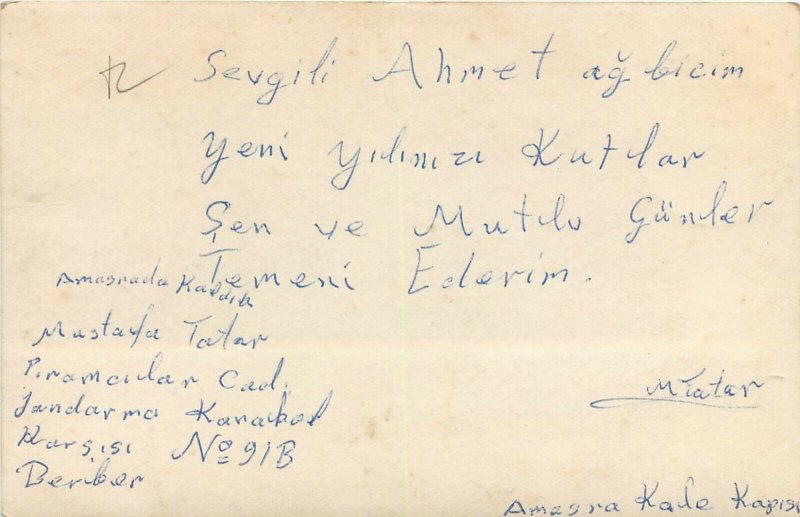 Sevgili Ahmet ağbicim
Yeni yılınızı Kutlar
Şen ve Mutlu Günler
Temeni Ederim.
Amasrada Kaldık
Mustafa Tatar
Piramcılar Cad.
Jandarma Karakol
Karşısı No 91B
Berber
MTatar
Amasra Kale Kapısı